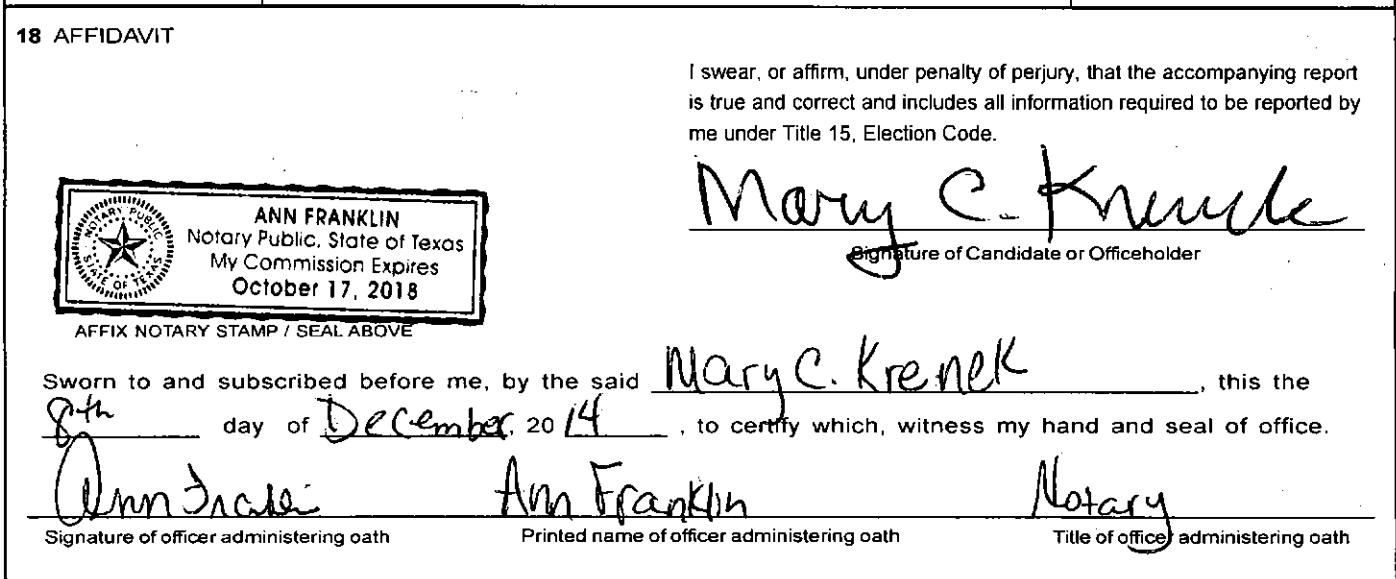 18 AFFIDAVIT
I swear, or affirm, under penalty of perjury, that the accompanying report
is true and correct and includes all information required to be reported by
me under Title 15, Election Code.
Mary C. Krenek
Signature of Candidate or Officeholder
NOTARY PUBLIC
STATE OF TEXAS
ANN FRANKLIN
Notary Public, State of Texas
My Commission Expires
October 17, 2018
AFFIX NOTARY STAMP / SEAL ABOVE
Sworn to and subscribed before me, by the said Mary C. Krenek, this the
8th day of December, 20 14, to certify which, witness my hand and seal of office.
Ann Franklin Ann Franklin Notary
Signature of officer administering oath Printed name of officer administering oath Title of officer administering oath